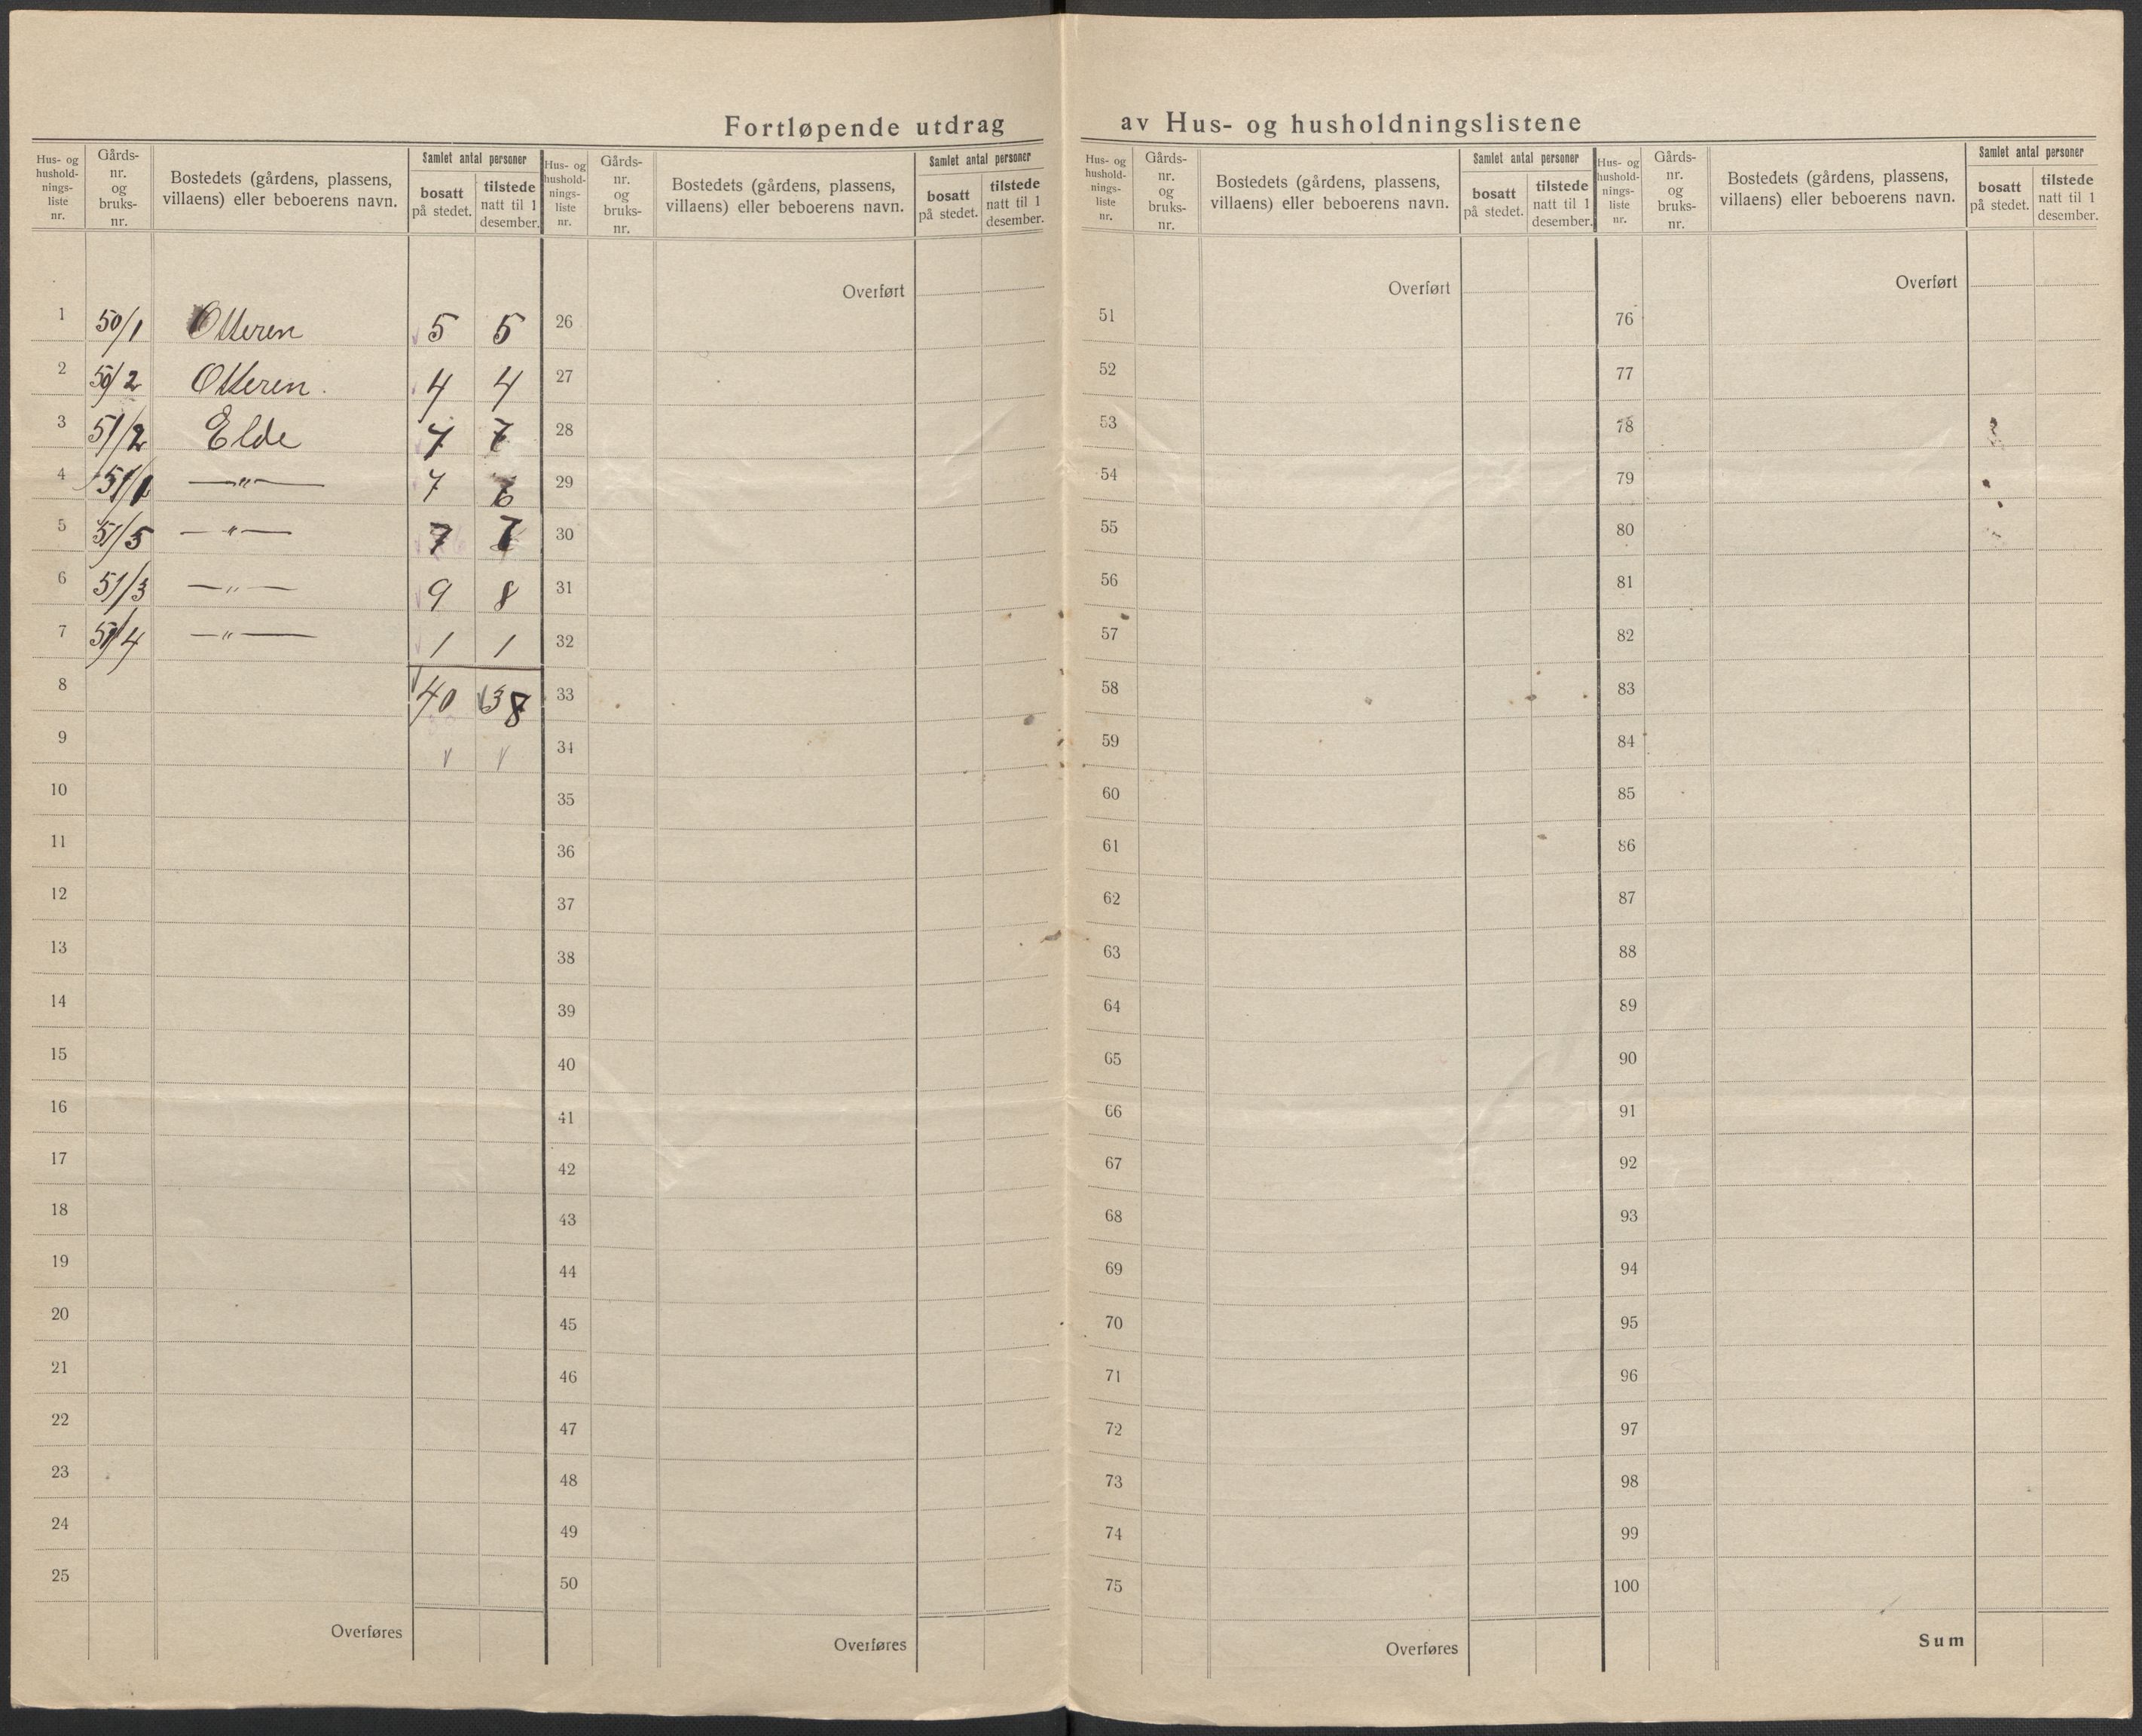 Fortløpende utdrag av Hus- og husholdningslistene
Hus- og hushold-nings-liste nr.
Gårds-nr. og bruks-nr.
Bostedets (gårdens, plassens, villaens) eller beboerens navn.
Samlet antal personer
bosatt på stedet.
tilstede natt til 1 desember.
Hus- og hushold-nings-liste nr.
Gårds-nr. og bruks-nr.
Bostedets (gårdens, plassens, villaens) eller beboerens navn.
Samlet antal personer
bosatt på stedet.
tilstede natt til 1 desember.
Hus- og hushold-nings-liste nr.
Gårds-nr. og bruks-nr.
Bostedets (gårdens, plassens, villaens) eller beboerens navn.
Samlet antal personer
bosatt på stedet.
tilstede natt til 1 desember.
Hus- og hushold-nings-liste nr.
Gårds-nr. og bruks-nr.
Bostedets (gårdens, plassens, villaens) eller beboerens navn.
Samlet antal personer
bosatt på stedet.
tilstede natt til 1 desember.
1 50/1 Otteren 5 5
2 50/2 Otteren. 4 4
3 51/2 Elde 7 7
4 51/1 —"— 7 6
5 51/5 —"— 7 7
6 51/3 —"— 9 8
7 51/4 —"— 1 1
8 40 38
9
10
11
12
13
14
15
16
17
18
19
20
21
22
23
24
25
Overføres
Overført
26
27
28
29
30
31
32
33
34
35
36
37
38
39
40
41
42
43
44
45
46
47
48
49
50
Overføres
Overført
51
52
53
54
55
56
57
58
59
60
61
62
63
64
65
66
67
68
69
70
71
72
73
74
75
Overføres
Overført
76
77
78
79
80
81
82
83
84
85
86
87
88
89
90
91
92
93
94
95
96
97
98
99
100
Sum